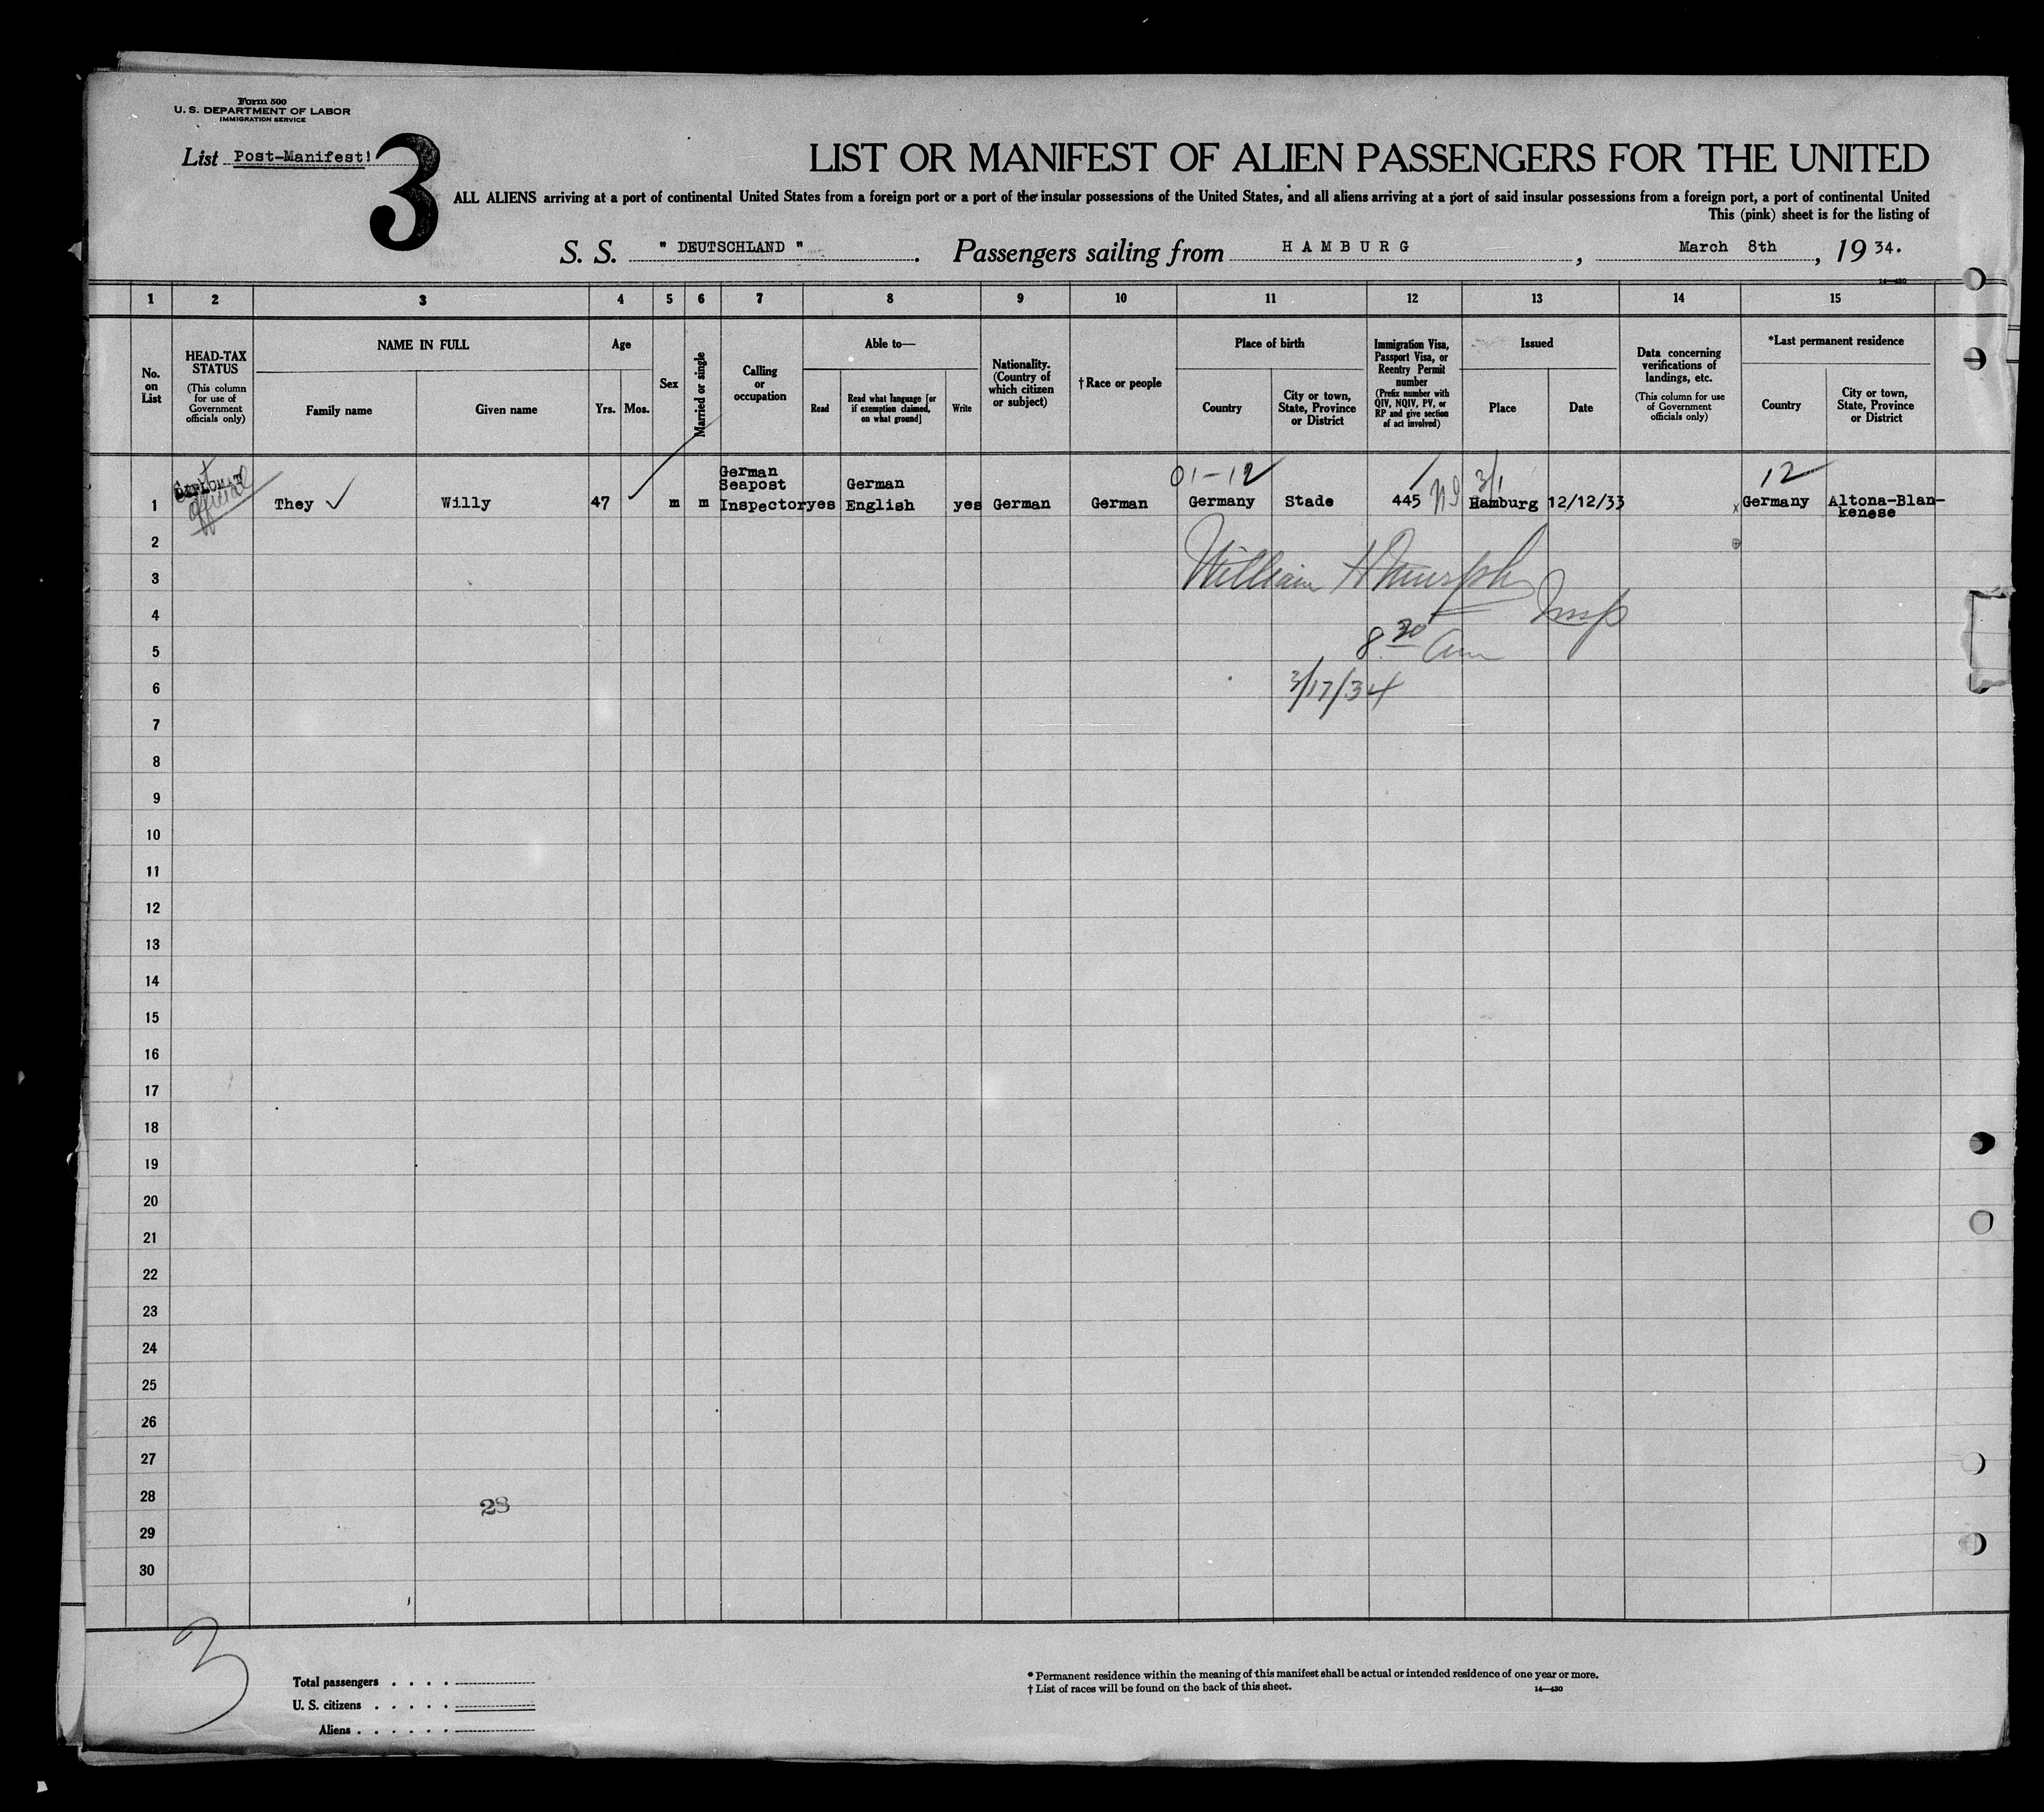 Form 500
U. S. DEPARTMENT OF LABOR
IMMIGRATION SERVICE
List Post-Manifest!
3
LIST OR MANIFEST OF ALIEN PASSENGERS FOR THE UNITED
ALL ALIENS arriving at a port of continental United States from a foreign port or a port of the insular possessions of the United States, and all aliens arriving at a port of said insular possessions from a foreign port, a port of continental United
This (pink) sheet is for the listing of
S. S. " DEUTSCHLAND ". Passengers sailing from HAMBURG, March 8th, 19 34.
14—430
1 2 3 4 5 6 7 8 9 10 11 12 13 14 15
No. on List
HEAD-TAX STATUS
(This column for use of Government officials only)
NAME IN FULL
Family name Given name
Age
Yrs. Mos.
Sex
Married or single
Calling or occupation
Able to—
Read
Read what language [or if exemption claimed, on what ground]
Write
Nationality. (Country of which citizen or subject)
† Race or people
Place of birth
Country
City or town, State, Province or District
Immigration Visa, Passport Visa, or Reentry Permit number
(Prefix number with QIV, NQIV, PV, or RP and give section of act involved)
Issued
Place Date
Data concerning verifications of landings, etc.
(This column for use of Government officials only)
*Last permanent residence
Country
City or town, State, Province or District
DIPLOMAT
official
01-12
3/1
12
1 They Willy 47 m m German Seapost Inspector yes German English yes German German Germany Stade 445 Hamburg 12/12/33 x Germany Altona-Blankenese
2
3
William H Murphy
4
Insp
5
8 30 am
6
3/17/34
7
8
9
10
11
12
13
14
15
16
17
18
19
20
21
22
23
24
25
26
27
28
28
29
30
3
Total passengers . . . .
U. S. citizens . . . . .
Aliens . . . . . .
* Permanent residence within the meaning of this manifest shall be actual or intended residence of one year or more.
† List of races will be found on the back of this sheet.
14—430